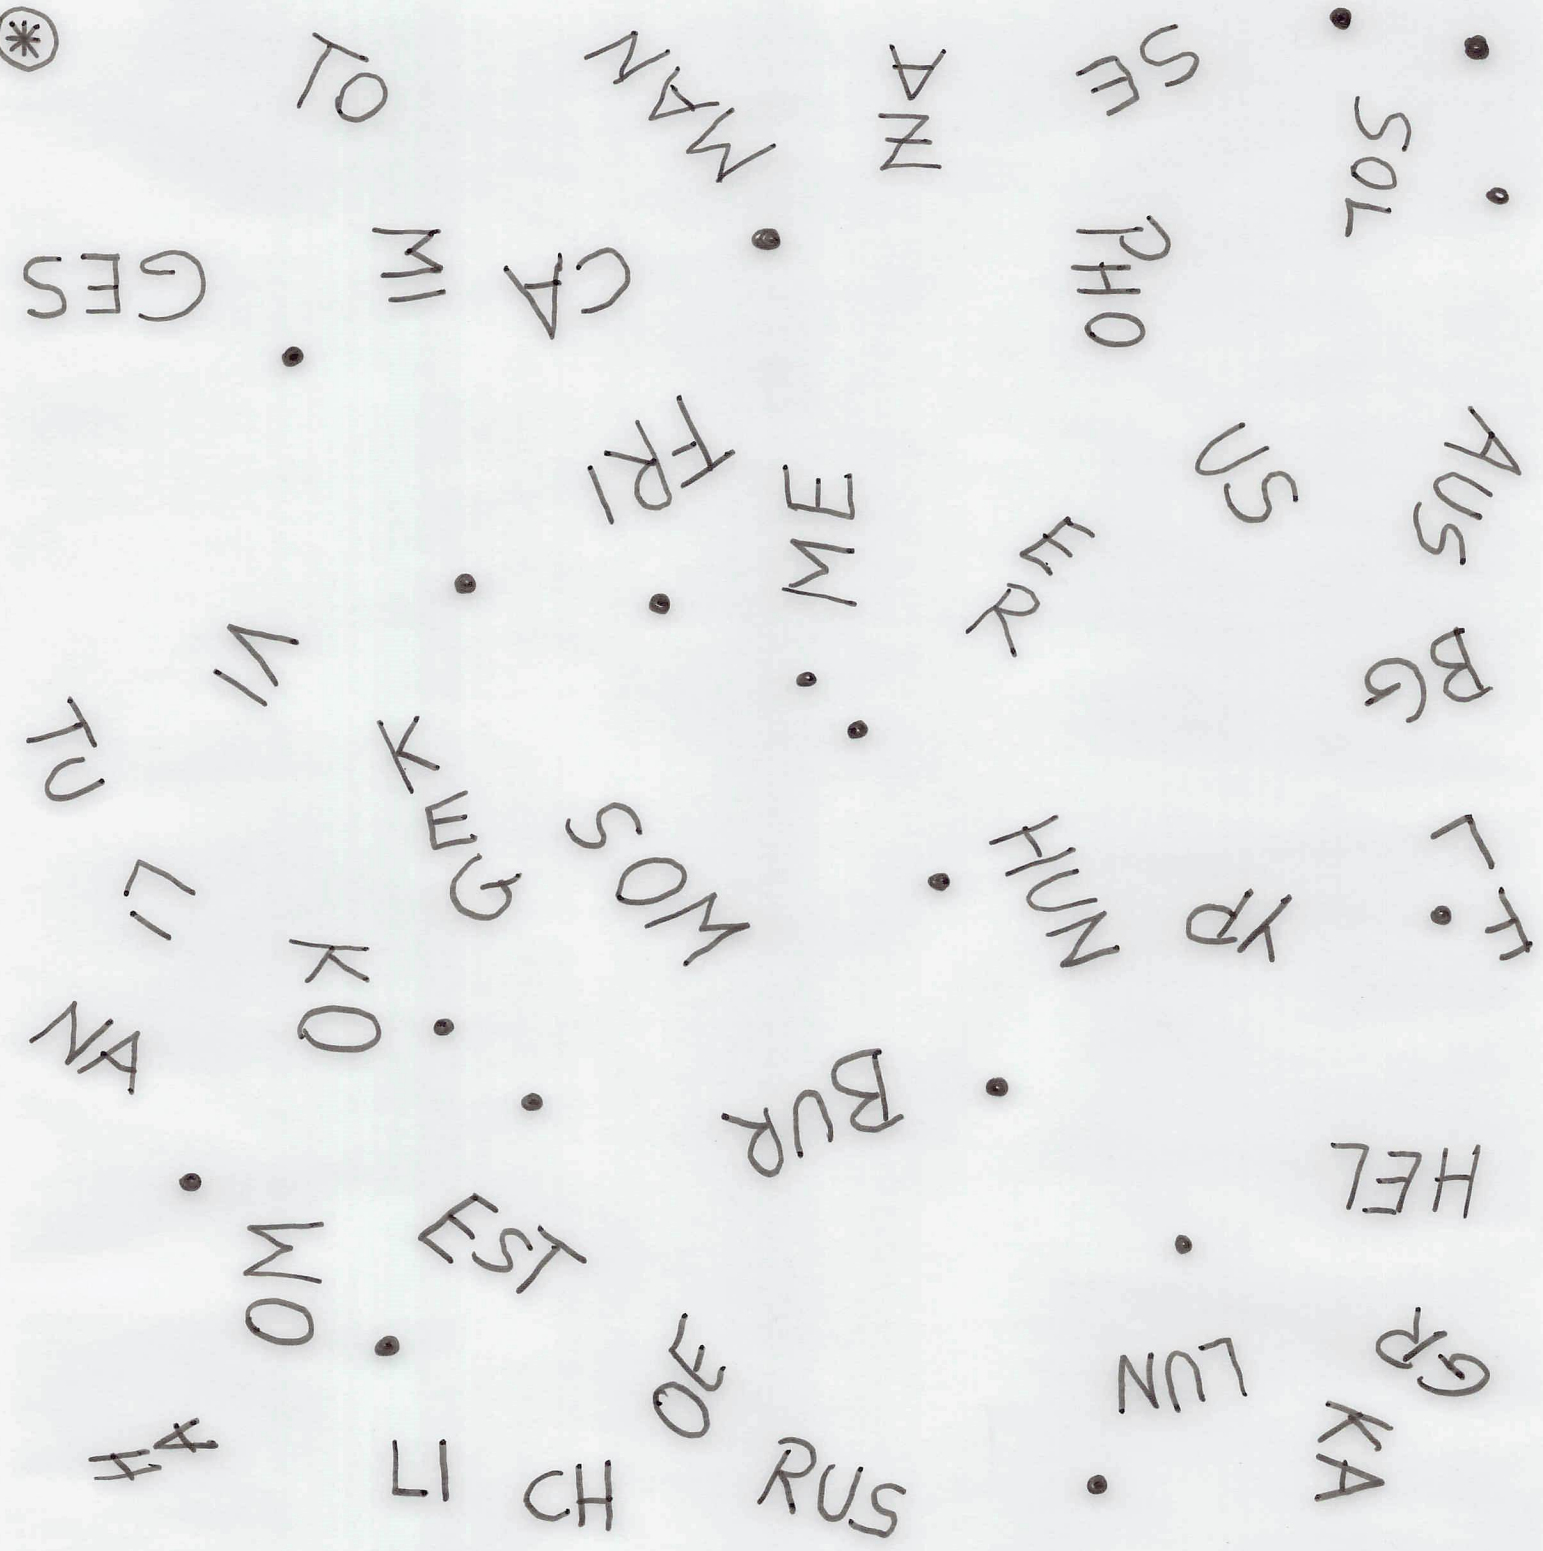 TO
MAN
AN
SE
SOL
GES
MI
CA
PHO
FRI
EM
US
AUS
ER
BG
VI
TU
KEG
SOM
HUN
YP
LT
LI
KO
NA
BUR
HEL
MO
EST
OE
LUN
GR
KA
HA
LI
CH
RUS